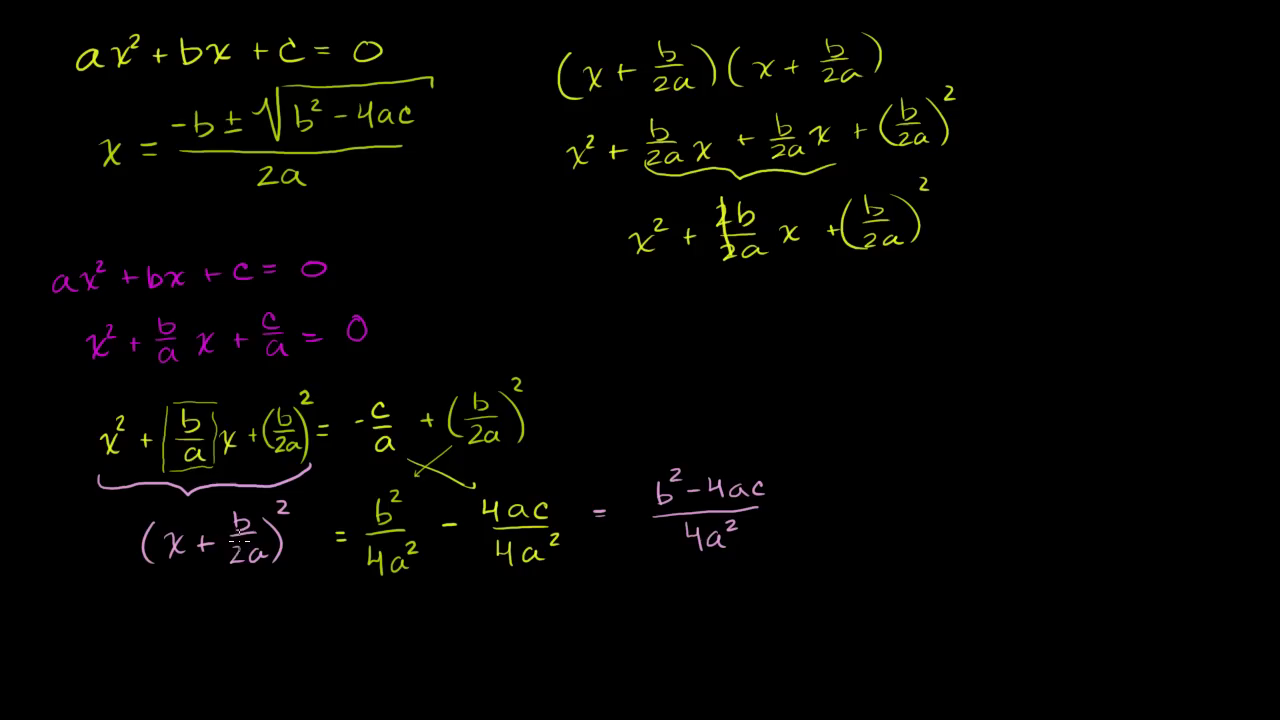 ax² + bx + c = 0
x = (-b ± √(b² - 4ac))/(2a)
(x + b/2a)(x + b/2a)
x² + b/2a x + b/2a x + (b/2a)²
x² + 2b/2a x + (b/2a)²
ax² + bx + c = 0
x² + b/a x + c/a = 0
x² + b/a x + (b/2a)² = -c/a + (b/2a)²
(x + b/2a)² = b²/4a² - 4ac/4a² = (b² - 4ac)/4a²